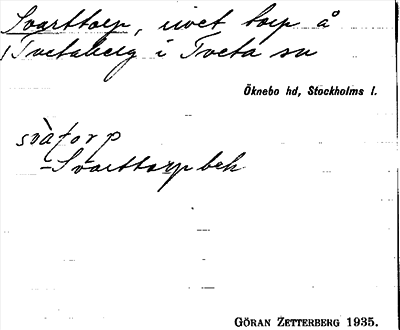 Svarttorp, rivet torp å
Tvetaberg i Tveta sn
Öknebo hd, Stockholms l.
svàtorp
=Svarttorpbek
GÖRAN ZETTERBERG 1935.